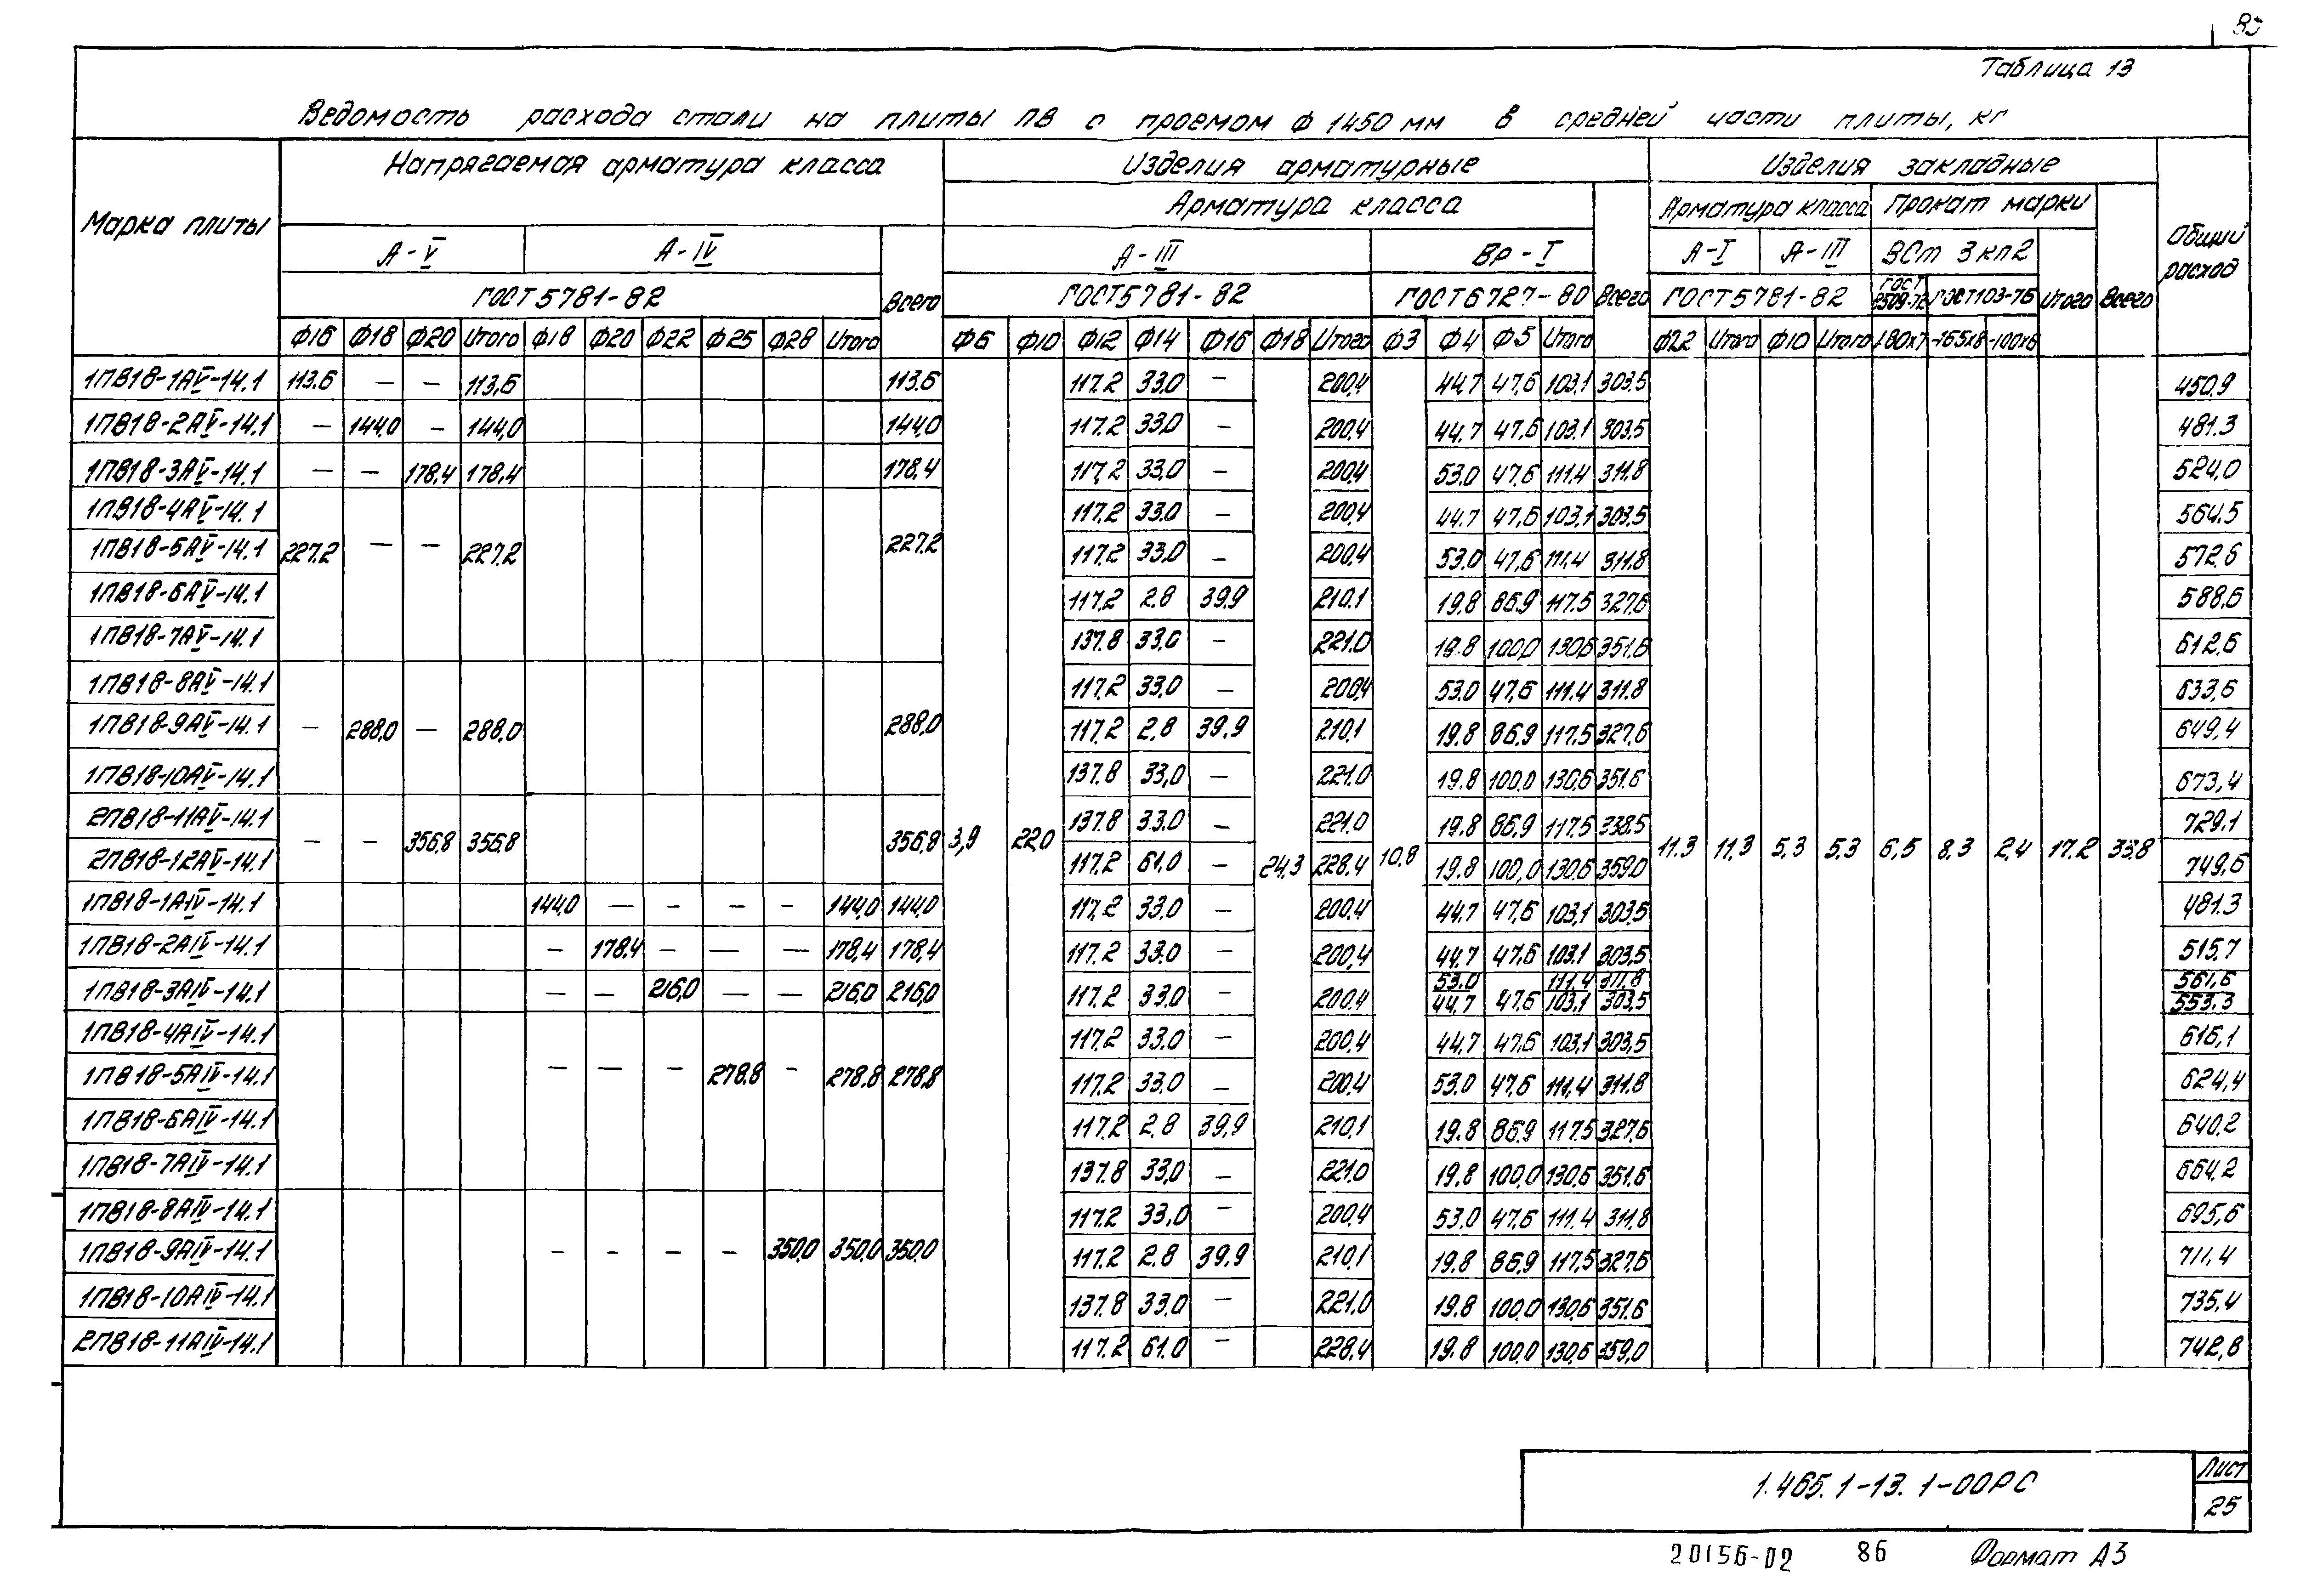 85
Таблица 13
Ведомость расхода стали на плиты ПВ с проемом Ф 1450 мм в средней части плиты, кг
Марка плиты
Напрягаемая арматура класса
Изделия арматурные
Изделия закладные
Общий расход
Арматура класса
Арматура класса
Прокат марки
А-V
А-IV
Всего
А-III
Вр-I
Всего
А-I
А-III
ВСт 3 кп2
Итого
Всего
ГОСТ 5781-82
ГОСТ 5781-82
ГОСТ 6727-80
ГОСТ 5781-82
ГОСТ 8509-72
ГОСТ 103-76
Ф16 Ф18 Ф20 Итого Ф18 Ф20 Ф22 Ф25 Ф28 Итого Ф6 Ф10 Ф12 Ф14 Ф16 Ф18 Итого Ф3 Ф4 Ф5 Итого Ф22 Итого Ф10 Итого L80х7 -165х8 -100х6
1ПВ18-1АV-14.1 113,6 — — 113,6 113,6 117.2 33.0 — 200,4 44,7 47,6 103,1 303,5 450,9
1ПВ18-2АV-14.1 — 144,0 — 144,0 144,0 117.2 33,0 — 200,4 44.7 47,6 103,1 303,5 481.3
1ПВ18-3АV-14.1 — — 178,4 178,4 178,4 117,2 33,0 — 200,4 53.0 47,6 111,4 311,8 524,0
1ПВ18-4АV-14.1 117,2 33.0 — 200,4 44.7 47,6 103,1 303,5 564.5
1ПВ18-5АV-14.1 227.2 — — 227,2 227.2 117.2 33.0 — 200,4 53.0 47,6 111,4 311,8 572.6
1ПВ18-6АV-14.1 117.2 2.8 39.9 210,1 19.8 86,9 117.5 327,6 588,6
1ПВ18-7АV-14.1 137.8 33,0 — 221.0 19.8 100,0 130,6 351,6 612,6
1ПВ18-8АV-14.1 117,2 33,0 — 200,4 53.0 47,6 111.4 311.8 633,6
1ПВ18-9АV-14.1 — 288,0 — 288,0 288,0 117.2 2.8 39.9 210,1 19.8 86,9 117,5 327,6 649,4
1ПВ18-10АV-14.1 137.8 33,0 — 221.0 19.8 100.0 130,6 351.6 673,4
2ПВ18-11АV-14.1 137.8 33.0 — 221,0 19.8 86,9 117,5 338,5 729.1
— — 356,8 356,8 356,8 3,9 22,0 10,8 11.3 11,3 5,3 5,3 6,5 8,3 2,4 17.2 33,8
2ПВ18-12АV-14.1 117,2 61,0 — 24,3 228,4 19.8 100,0 130.6 359,0 749,6
1ПВ18-1АIV-14.1 144,0 — — — — 144,0 144,0 117,2 33,0 — 200,4 44,7 47,6 103,1 303,5 481.3
1ПВ18-2АIV-14.1 — 178,4 — — — 178,4 178,4 117.2 33.0 — 200,4 44.7 47,6 103.1 303,5 515,7
1ПВ18-3АIV-14.1 — — 216,0 — — 216,0 216,0 117,2 33,0 — 200,4 53.0 111,4 311,8 561,6
44.7 47,6 103,1 303,5 553.3
1ПВ18-4АIV-14.1 117,2 33.0 — 200,4 44,7 47,6 103,1 303,5 616,1
1ПВ18-5АIV-14.1 — — — 278.8 — 278,8 278,8 117,2 33.0 — 200,4 53.0 47,6 111,4 311,8 624,4
1ПВ18-6АIV-14.1 117.2 2,8 39,9 210,1 19.8 86,9 117.5 327,6 640.2
1ПВ18-7АIV-14.1 137.8 33,0 — 221,0 19.8 100,0 130,6 351.6 664.2
1ПВ18-8АIV-14.1 117.2 33,0 — 200,4 53.0 47,6 111,4 311,8 695,6
1ПВ18-9АIV-14.1 — — — — 350,0 350,0 350,0 117.2 2.8 39.9 210,1 19.8 86,9 117,5 327,6 711,4
1ПВ18-10АIV-14.1 137.8 33,0 — 221,0 19.8 100.0 130,6 351.6 735,4
2ПВ18-11АIV-14.1 117.2 61.0 — 228,4 19.8 100.0 130,6 359,0 742,8
1.465.1-13.1-00РС
Лист
25
20156-02 86 Формат А3